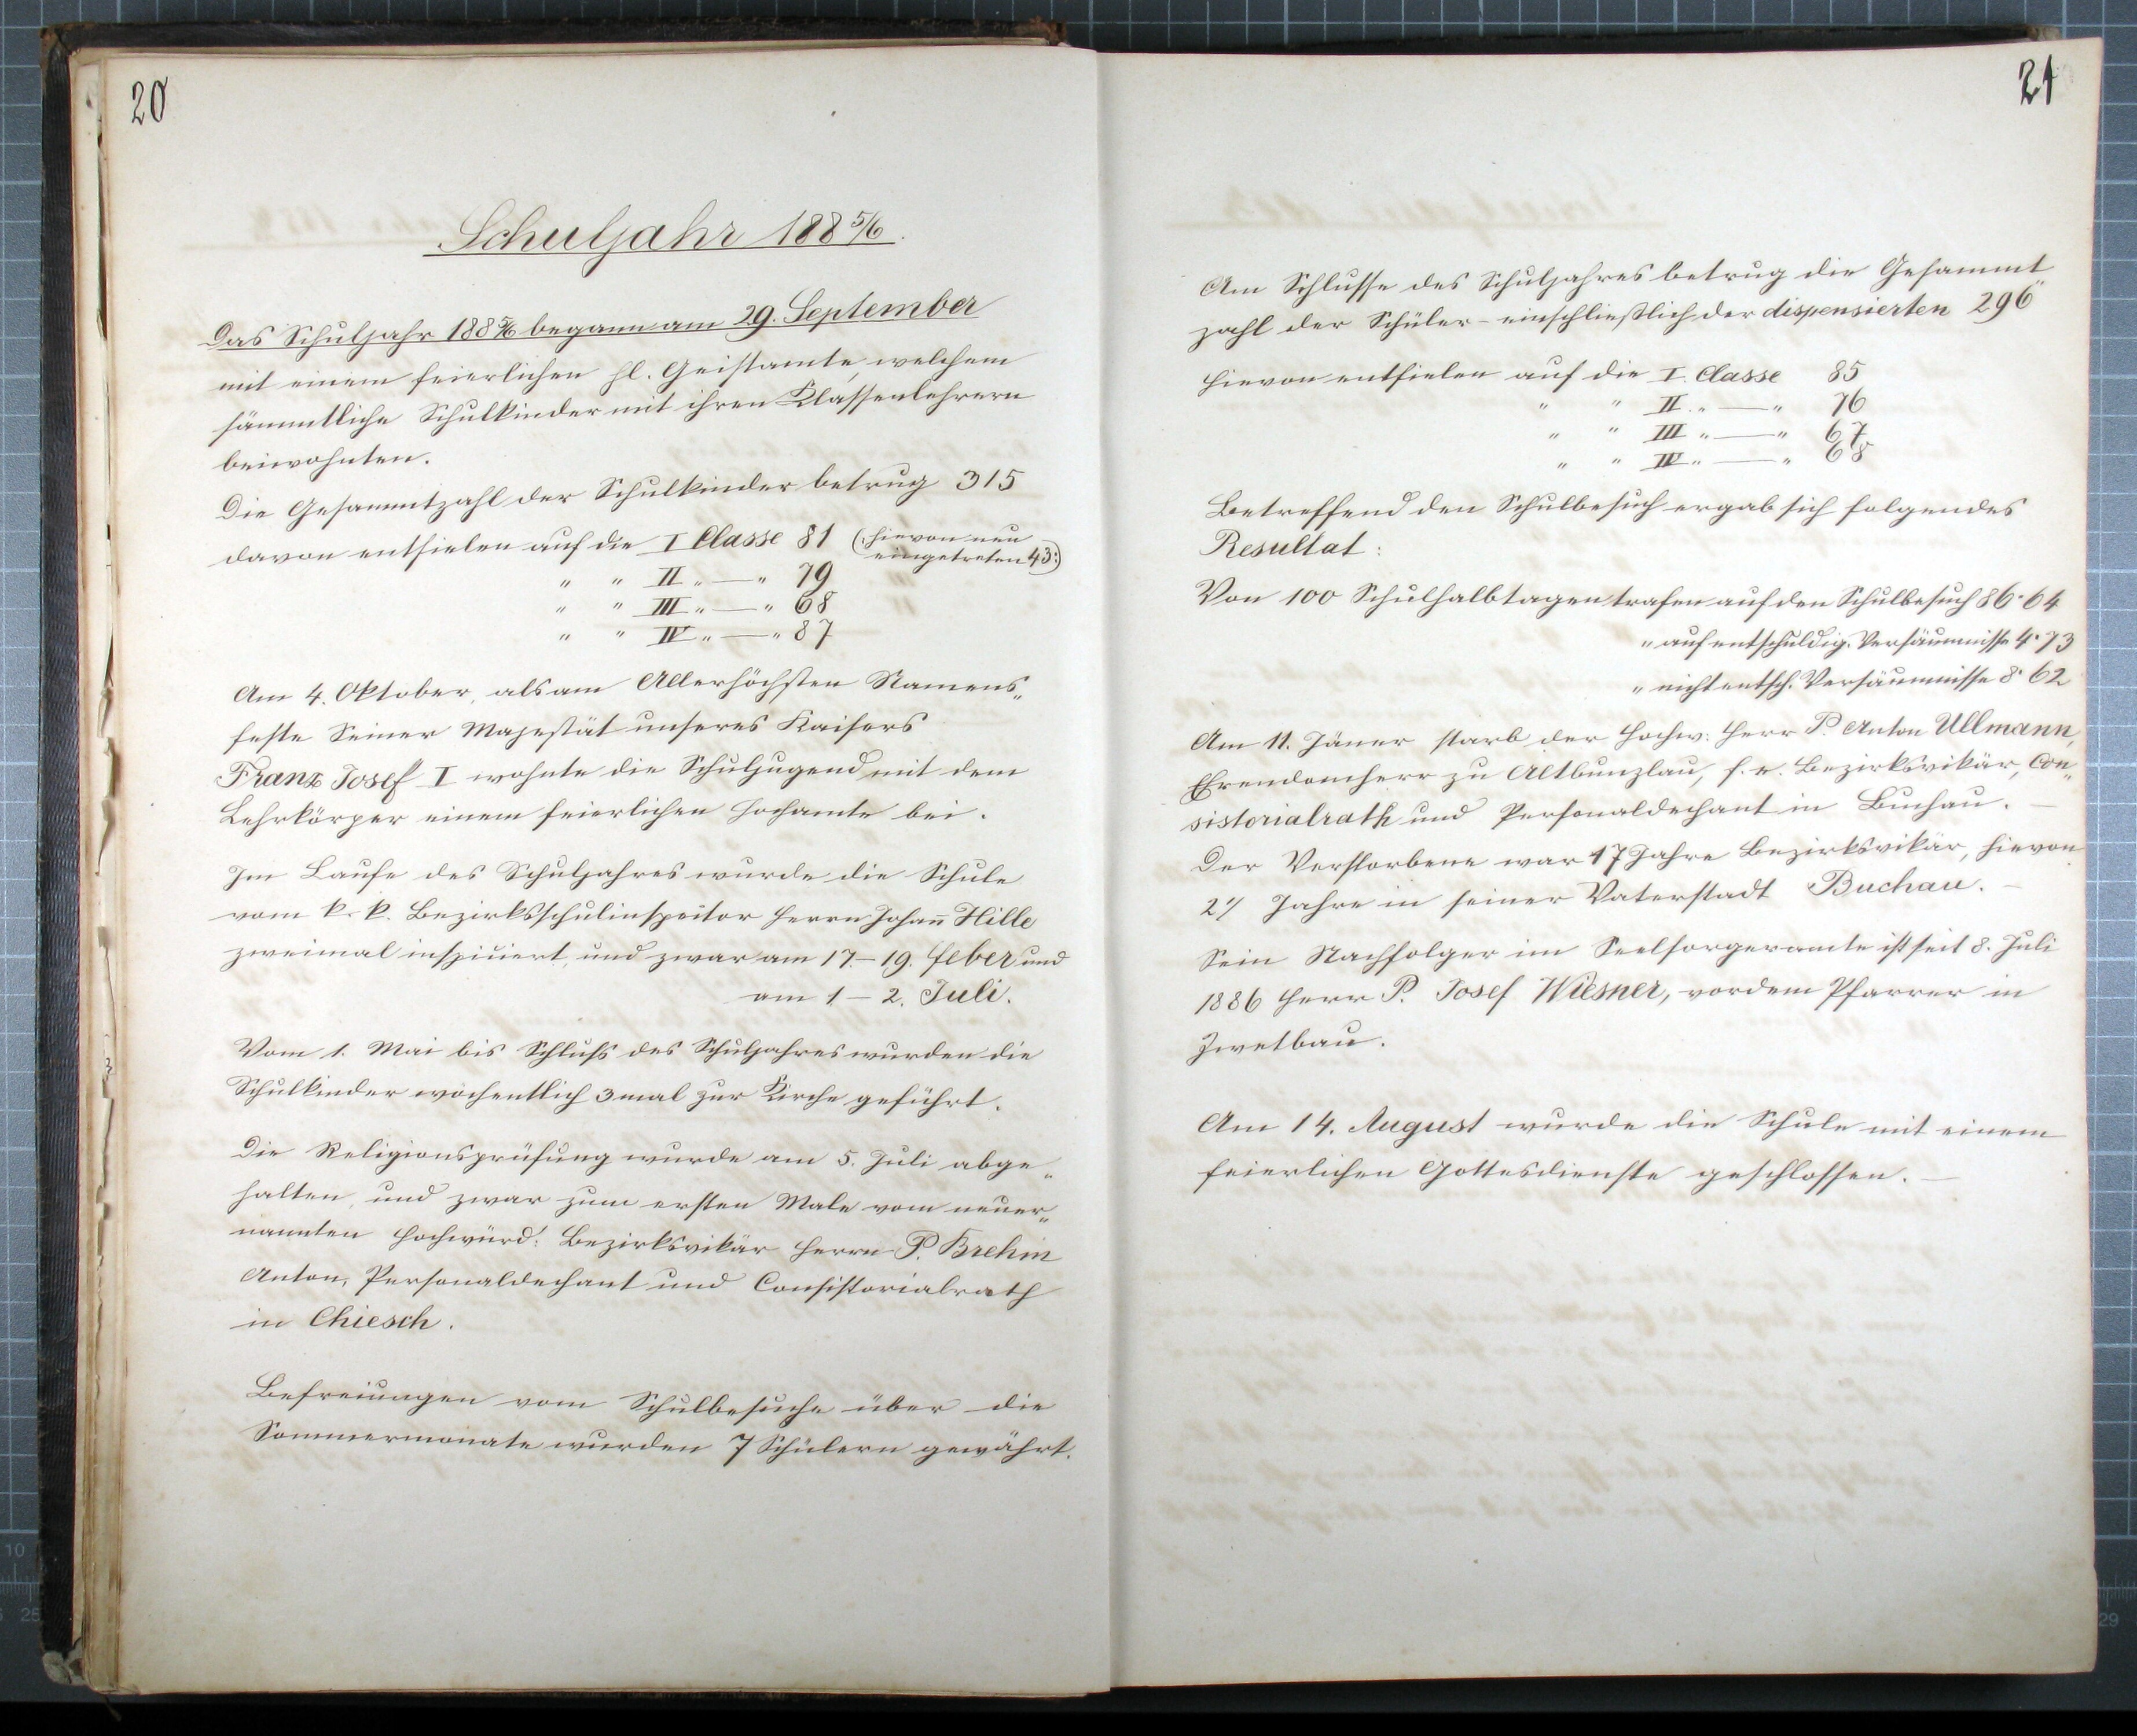 20
Schuljahr 188 5/6.
Das Schuljahr 188 5/6 begann am 29. September
mit einem feierlichen hl. Geistamte, welchem
sämmtliche Schulkinder mit ihren Klassenlehrern
beiwohnten.
Die Gesammtzahl der Schulkinder betrug 315
davon entfielen auf die I Classe 81 (: hievon neu
eingetreten 43:)
" " II " — " 79
" " III " — " 68
" " IV " — " 87
Am 4. Oktober, als am Allerhöchsten Namens„
feste Seiner Majestät unseres Kaisers
Franz Josef I wohnte die Schuljugend mit dem
Lehrkörper einem feierlichen Hochamte bei.
Im Laufe des Schuljahres wurde die Schule
vom k. k. Bezirksschulinspector Herrn Johann Hille
zweimal inspiciert, und zwar am 17.–19. Feber und
am 1 – 2. Juli.
Vom 1. Mai bis Schluß des Schuljahres wurden die
Schulkinder wöchentlich 3 mal zur Kirche geführt.
Die Religionsprüfung wurde am 5. Juli abge„
halten, und zwar zum ersten Male vom neuer„
nannten Hochwürd. Bezirksvikär Herrn P. Brehm
Anton, Personaldechant und Consistorialrath
in Chiesch.
Befreiungen vom Schulbesuche über die
Sommermonate wurden 7 Schülern gewährt.
21
Am Schlusse des Schuljahres betrug die Gesammt„
zahl der Schüler – einschließlich der dispensierten 296
Hievon entfielen auf die I. Classe 85
" " II. " — " 76
" " III " — " 67
" " IV " — " 68
Betreffend den Schulbesuch ergab sich folgendes
Resultat:
Von 100 Schulhalbtagen trafen auf den Schulbesuch 86·64
" auf entschuldig. Versäumnisse 4·73
" nicht entsch. Versäumnisse 8·62
Am 11. Jäner starb der Hochw: Herr P. Anton Ullmann,
Erendomherr zu Altbunzlau, f. e. Bezirksvikär, Con„
sistorialrath und Personaldechant in Buchau. —
Der Verstorbene war 17 Jahre Bezirksvikär, hievon
2½ Jahre in seiner Vaterstadt Buchau. —
Sein Nachfolger im Seelsorgeramte ist seit 8. Juli
1886 Herr P. Josef Wiesner, vordem Pfarrer in
Zwetbau.
Am 14. August wurde die Schule mit einem
feierlichen Gottesdienste geschlossen. —